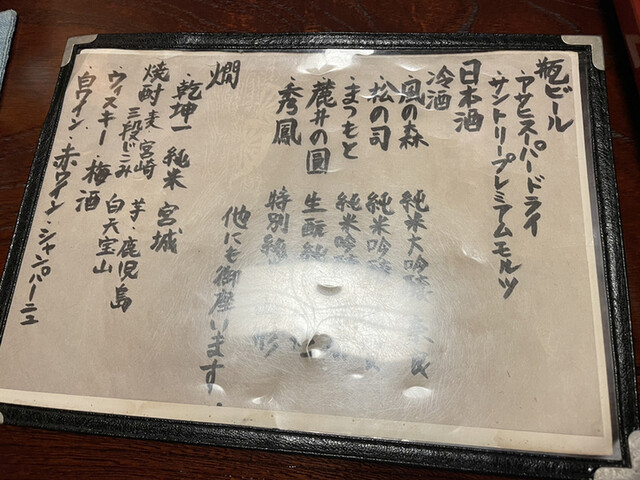 瓶ビール
アサヒスーパードライ
サントリープレミアムモルツ
日本酒
冷酒
・風の森 純米大吟醸
・松の司 純米吟醸
・まつもと 純米吟醸
・麓井の圓 生酛純
・秀鳳 特別純 形
他にも御座います。
燗
・乾坤一 純米 宮城
・焼酎 麦 宮崎 芋・鹿児島
三段じこみ 白天宝山
・ウィスキー 梅酒
・白ワイン・赤ワイン・シャンパーニュ